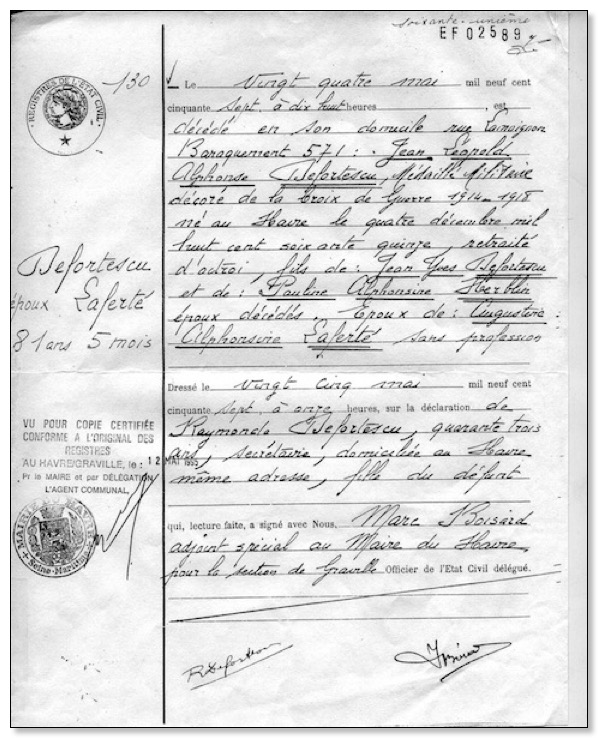 soixante-unième
EF 02589
130
REGISTRES DE L'ETAT CIVIL
Le Vingt quatre mai mil neuf cent
cinquante sept, à dix huit heures, est
décédé en son domicile rue Lamoignon
Baraquement 571 : Jean Léopold
Alphonse Defortescu, Médaillé Militaire
décoré de la Croix de Guerre 1914-1918
né au Havre le quatre décembre mil
huit cent soixante quinze, retraité
d'octroi fils de : Jean Yves Defortescu
et de : Pauline Alphonsine Herblin
époux décédés. Epoux de : Augustine
Alphonsine Laferté sans profession
Defortescu
époux Laferté
81 ans 5 mois
Dressé le Vingt cinq mai mil neuf cent
cinquante sept, à onze heures, sur la déclaration de
Raymonde Defortescu, quarante trois
ans, secrétaire, domiciliée au Havre
même adresse, fille du défunt
qui, lecture faite, a signé avec Nous, Marc Boisard
adjoint spécial au Maire du Havre
pour la section de Graville Officier de l'Etat Civil délégué.
VU POUR COPIE CERTIFIÉE
CONFORME A L'ORIGINAL DES
REGISTRES
AU HAVRE/GRAVILLE, le : 12 MAI
Pr le MAIRE et par DÉLÉGATION
L'AGENT COMMUNAL,
Seine-Maritime
RDefortescu